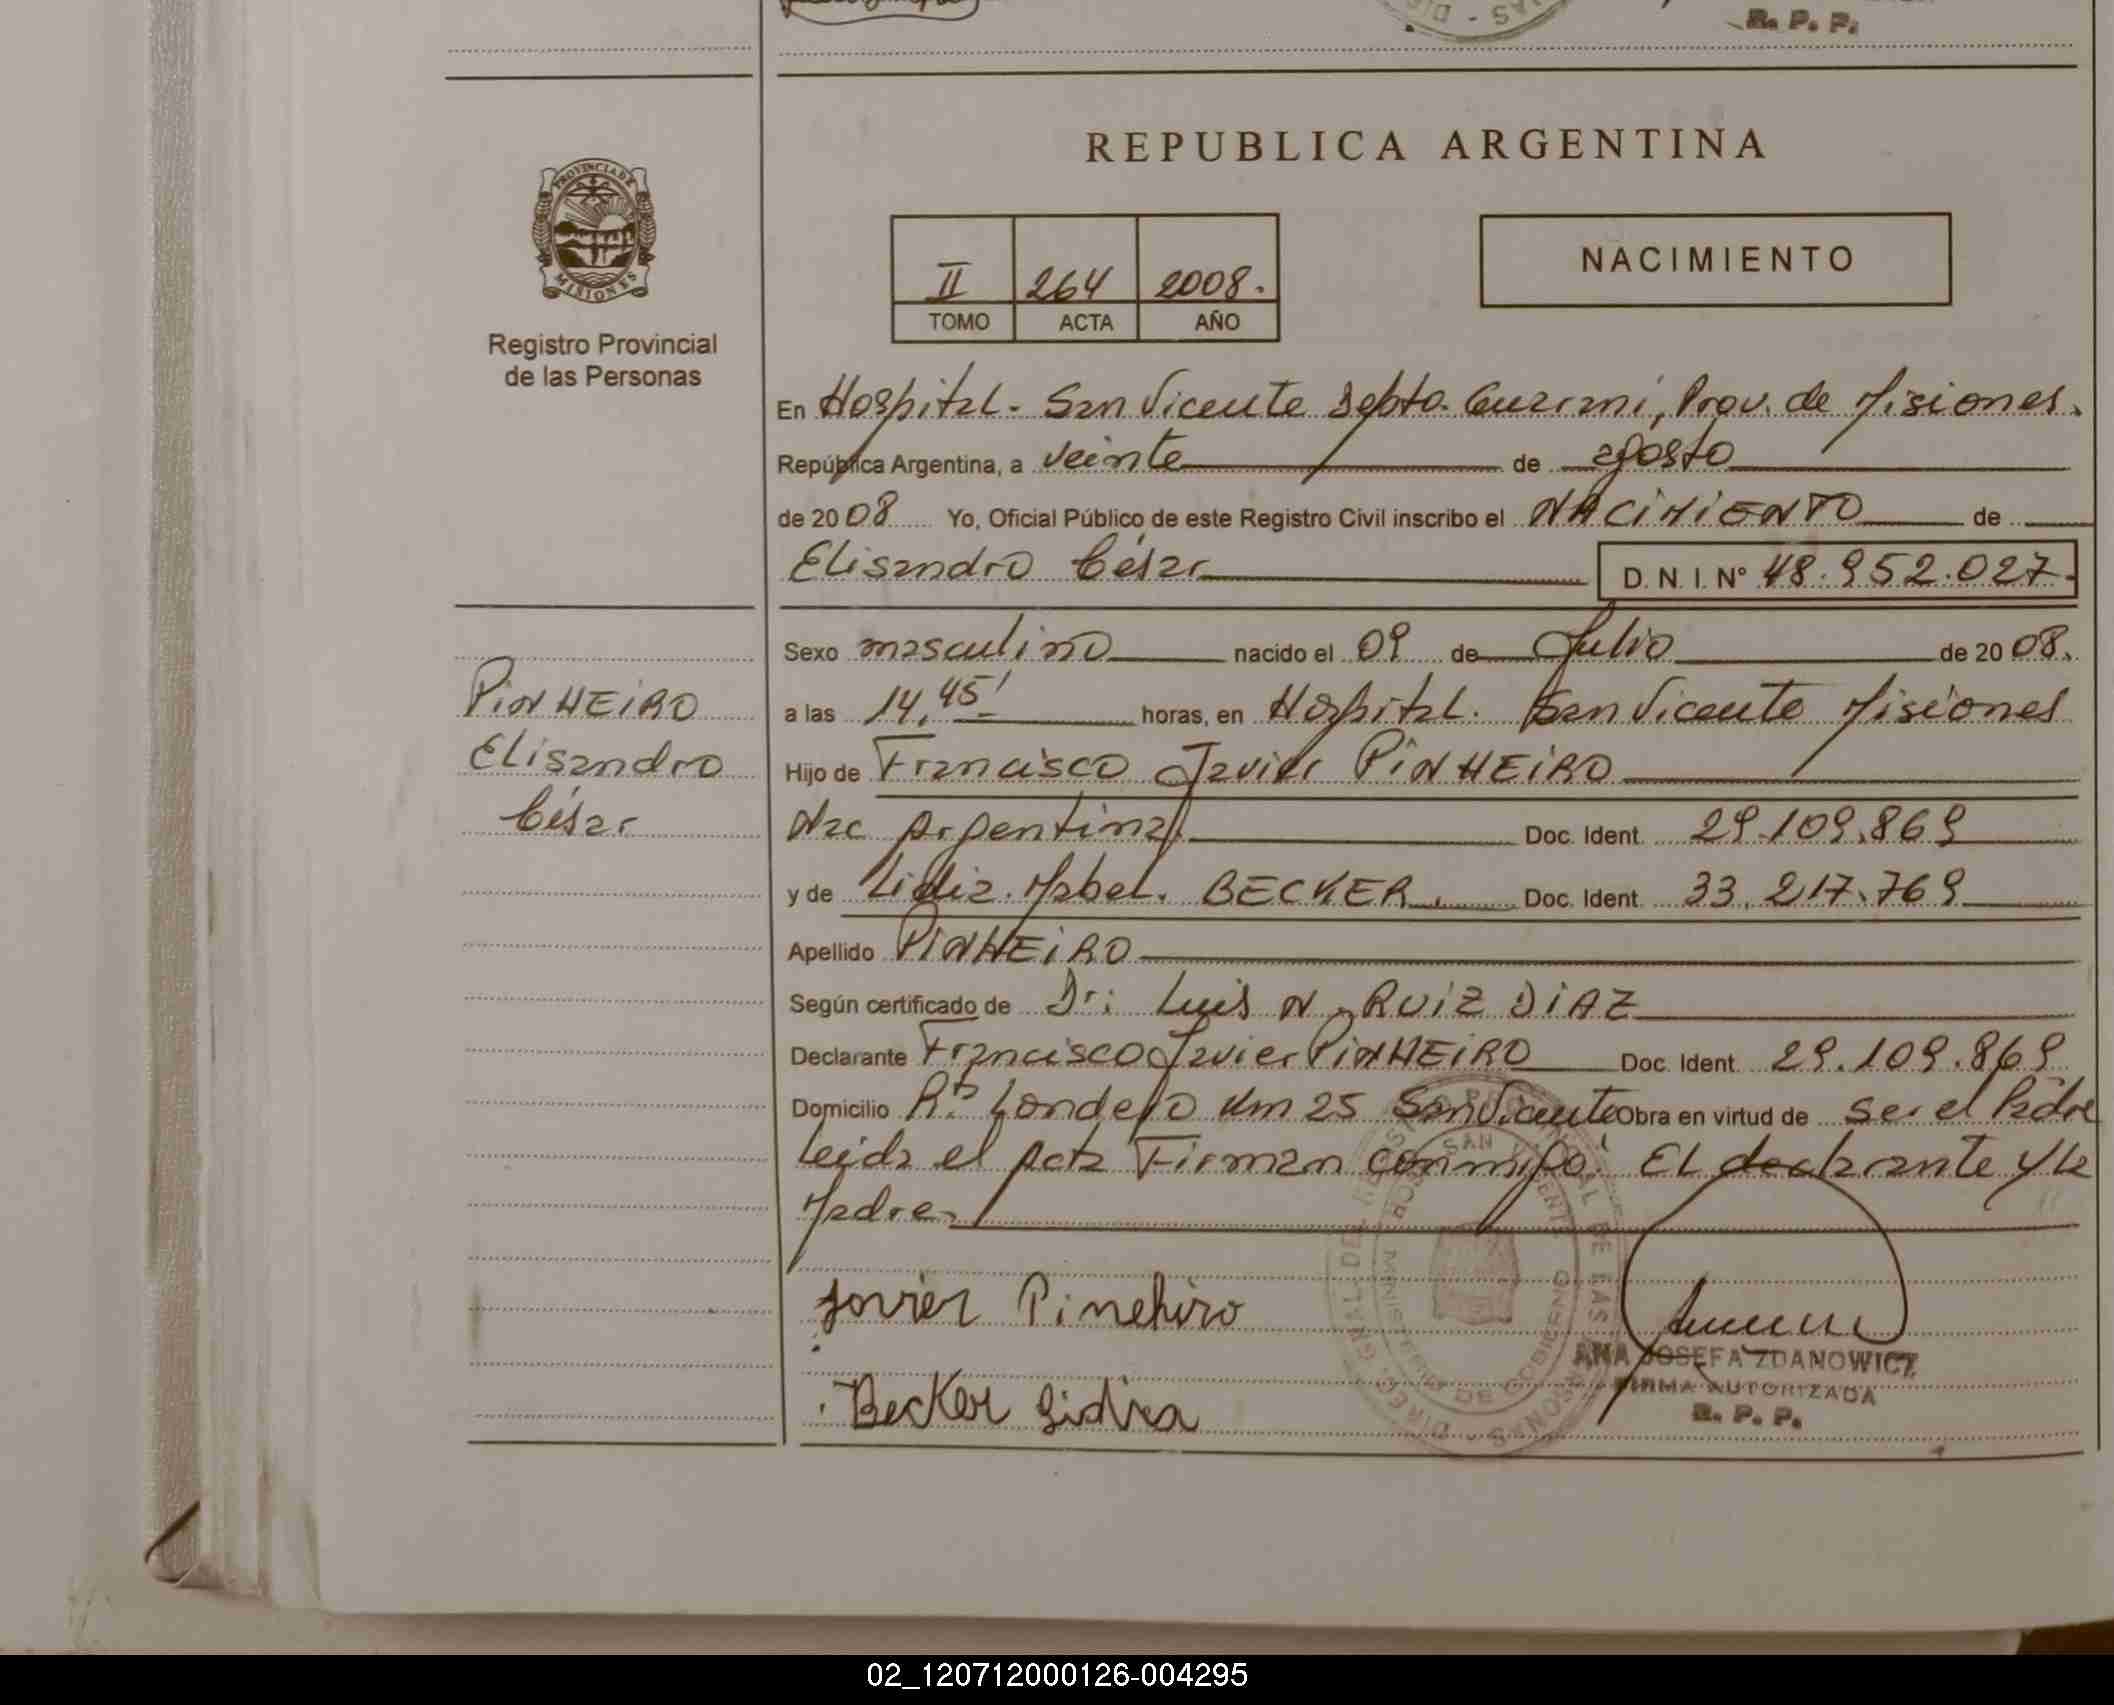 R. P. P.
REPUBLICA ARGENTINA
PROVINCIA DE
MISIONES
Registro Provincial
de las Personas
II 264 2008.
TOMO ACTA AÑO
NACIMIENTO
En Hospital. San Vicente Depto. Guarani, Prov. de Misiones.
República Argentina, a veinte de agosto
de 2008 Yo, Oficial Público de este Registro Civil inscribo el NACIMIENTO de
Elisandro César D. N. I. Nº 48.952.027.
Sexo masculino nacido el 09 de Julio de 2008.
PINHEIRO
Elisandro
César
a las 14,45' horas, en Hospital. San Vicente Misiones
Hijo de Francisco Javier PINHEIRO
Nac Argentina. Doc. Ident. 29.109.869
y de Lidia Mabel. BECKER. Doc. Ident. 33.217.769
Apellido PINHEIRO
Según certificado de Dr: Luis N. RUIZ DIAZ
Declarante Francisco Javier PINHEIRO Doc. Ident. 29.109.869
Domicilio Rº Londero Km 25 San Vicente Obra en virtud de ser el Padre
Leida el Acta Firman conmigo: El declarante y la
Madre.
Javier Pinehiro
Becker Lidia
ANA JOSEFA ZDANOWICZ
FIRMA AUTORIZADA
R. P. P.
02_120712000126-004295